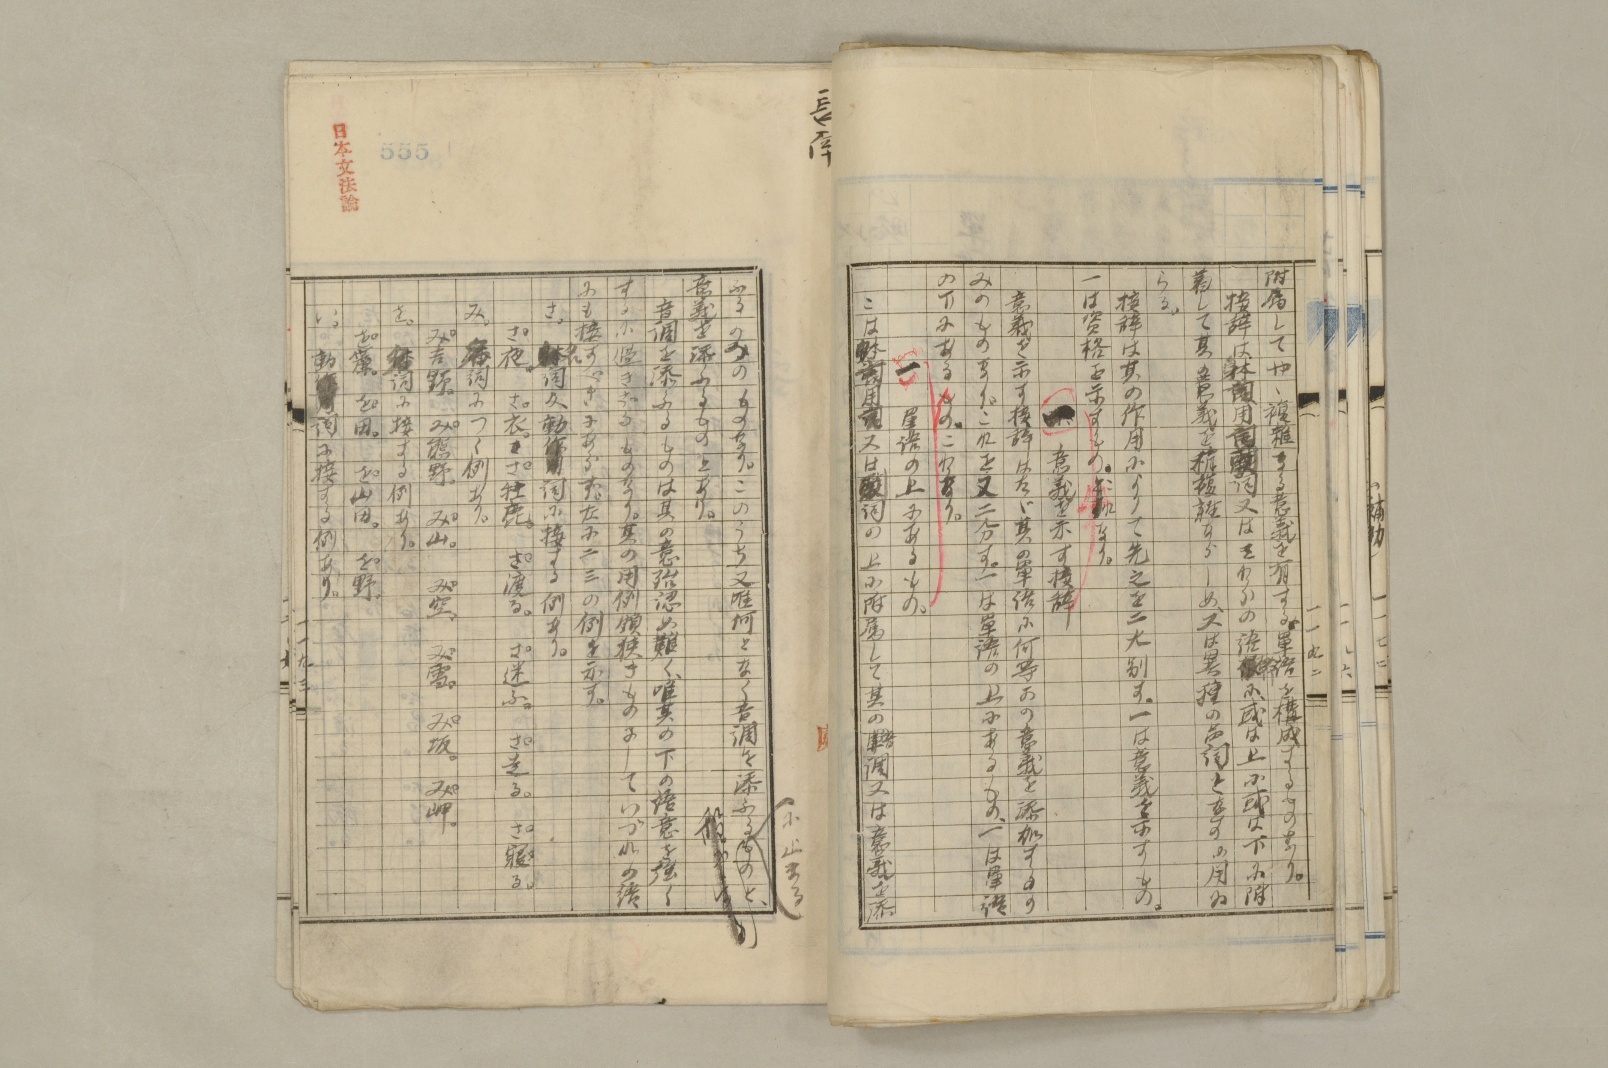 附属してやゝ複雑なる意義を有する単語を構成するものなり。
接辞は用詞又はそれらの語に或は上に或は下に附
着して其の意義を複雑ならしめ、又は異種の品詞となすに用ゐ
らる。
接辞は其の作用によりて先之を二大別す。一は意義を示すもの。
一は資格を示すもの。なり。
意義を示す接辞
意義を示す接辞はたゞ其の単語に何等かの意義を添加するの
みのものなり。これを又二分す。一は単語の上にあるもの、一は単語
の下にあるもの。これなり。
一 単語の上にあるもの。
こは用詞又は副詞の上に附属して其の語調又は意義を添
ふるのみのものなり。このうち又唯何となく音調を添ふるものと、
に止まる
意義を添ふるものとあり。
音調を添ふるものは其の意殆認め難く、唯其の下の語意を強く
するに過ぎざるものなり。其の用例頗狭きものにしていづれの語
にも接すべきにあらず。左に二三の例を示す。
さ。 体詞又動作詞に接する例あり。
さ夜。 さ衣。 さ牡鹿。 さ渡る。 さ迷ふ。 さ走る。 さ寝る。
み。 詞につく例あり。
み吉野。 み熊野。 み山。 み空。 み雪。 み坂。 み岬。
を。 詞に接する例あり。
を簾。 を田。 を山田。 を野。
い。 動詞に接する例あり。
日本文法論
555
一一九二
一一九三
補助